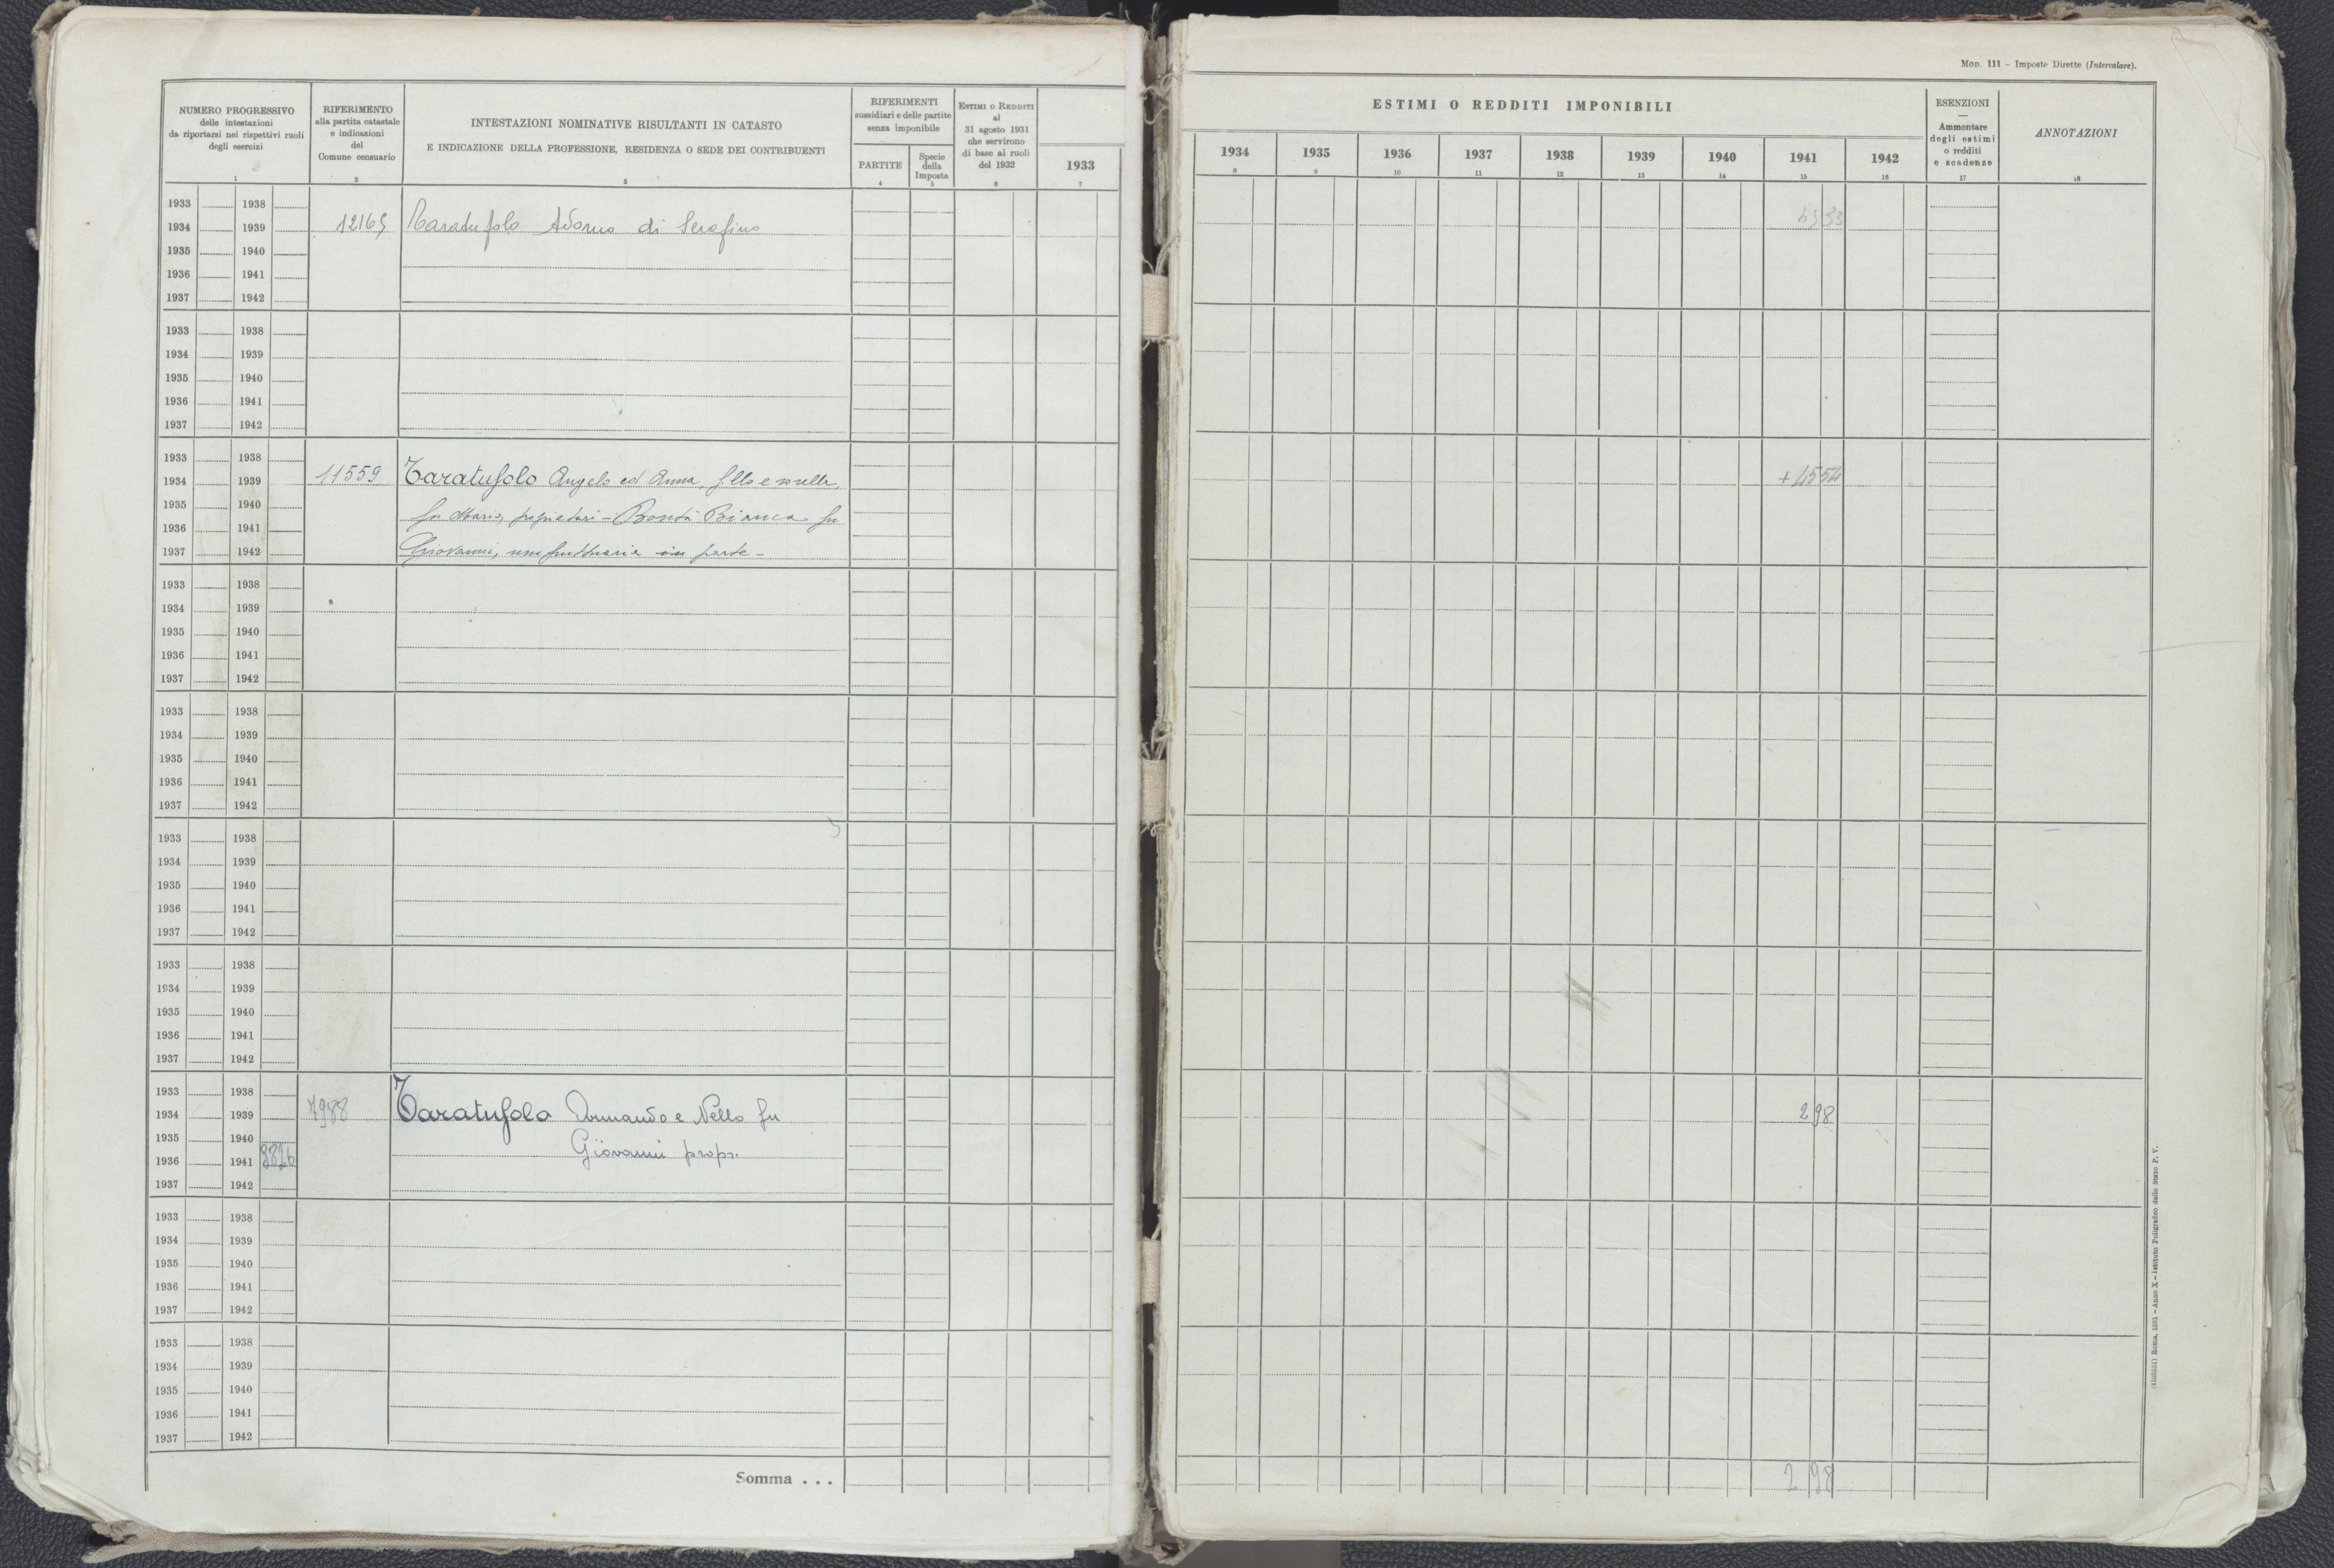 MOD. 111 – Imposte Dirette (Intercalare).
NUMERO PROGRESSIVO
delle intestazioni
da riportarsi nei rispettivi ruoli
degli esercizi
1
RIFERIMENTO
alla partita catastale
e indicazioni
del
Comune censuario
2
INTESTAZIONI NOMINATIVE RISULTANTI IN CATASTO
E INDICAZIONE DELLA PROFESSIONE, RESIDENZA O SEDE DEI CONTRIBUENTI
3
RIFERIMENTI
sussidiari e delle partite
senza imponibile
PARTITE
4
Specie
della
Imposta
5
ESTIMI O REDDITI
al
31 agosto 1931
che servirono
di base ai ruoli
del 1932
6
1933
7
ESTIMI O REDDITI IMPONIBILI
1934 1935 1936 1937 1938 1939 1940 1941 1942
8 9 10 11 12 13 14 15 16
ESENZIONI
—
Ammontare
degli estimi
o redditi
e scadenze
17
ANNOTAZIONI
18
1933 1938
1934 1939 12165 Taratufolo Adorno di Serafino
1935 1940
1936 1941
1937 1942
1933 1938
1934 1939
1935 1940
1936 1941
1937 1942
1933 1938
1934 1939 11559 Taratufolo Angelo ed Anna, f.llo e sorella, + 4554
1935 1940 fu Mario, propietari – Bontà Bianca fu
1936 1941
1937 1942 Giovanni, usufruttuaria in parte –
1933 1938
1934 1939
1935 1940
1936 1941
1937 1942
1933 1938
1934 1939
1935 1940
1936 1941
1937 1942
1933 1938
1934 1939
1935 1940
1936 1941
1937 1942
1933 1938
1934 1939
1935 1940
1936 1941
1937 1942
1933 1938
1934 1939 7988 Taratufolo Armando e Nello fu 2 98
1935 1940
1936 1941 3826 Giovanni propr.
1937 1942
1933 1938
1934 1939
1935 1940
1936 1941
1937 1942
1933 1938
1934 1939
1935 1940
1936 1941
1937 1942
Somma . . . 2 98
Roma, 1931 – Anno X – Istituto Poligrafico dello Stato P. V.